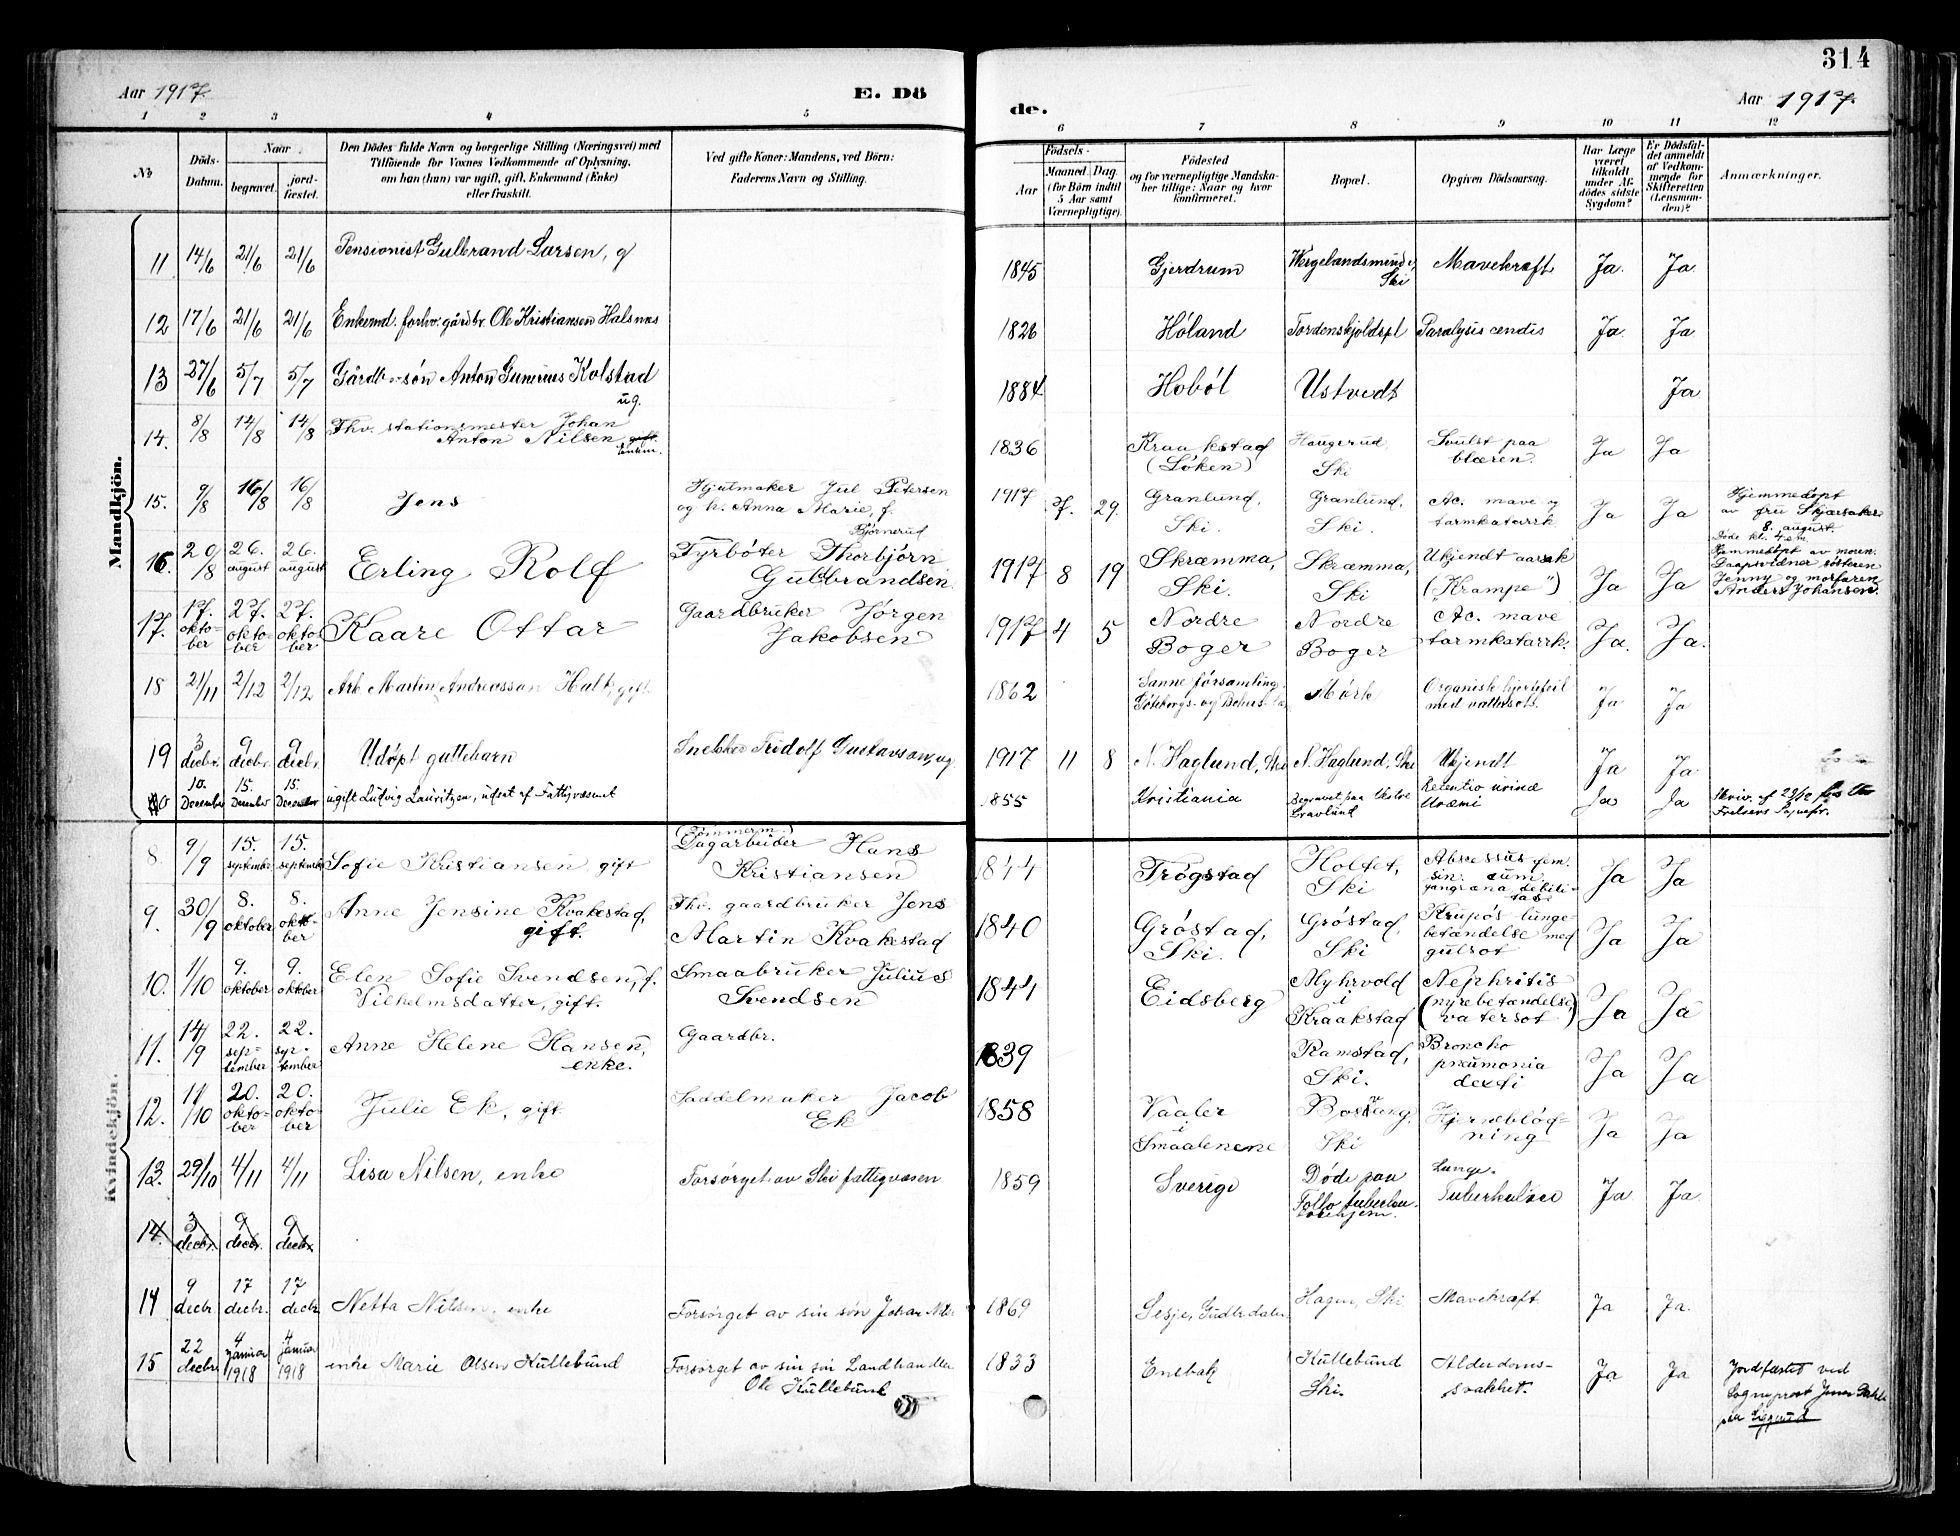 314
Aar 1917.
E. Dö
de.
Aar 1917.
1 2 3 4 5 6 7 8 9 10 11 12
No
Döds-
Datum.
Naar
begravet.
jord-
fæstet.
Den Dödes fulde Navn og borgerlige Stilling (Næringsvei) med
Tilföiende for Voxnes Vedkommende af Oplysning,
om han (hun) var ugift, gift, Enkemand (Enke)
eller fraskilt.
Ved gifte Koner: Mandens, ved Börn:
Faderens Navn og Stilling.
Födsels-
Aar
Maaned. Dag.
(for Börn indtil
5 Aar samt
Værnepligtige).
Födested
og for værnepligtige Mandska-
ber tillige: Naar og hvor
konfirmeret.
Bopæl.
Opgiven Dödsaarsag.
Har Læge
været
tilkaldt
under Af-
dödes sidste
Sygdom?
Er Dödsfal-
det anmeldt
af Vedkom-
mende for
Skifteretten
(Lensman-
den)?
Anmærkninger.
Mandkjön.
11 14/6 21/6 21/6 Pensionist Gulbrand Larsen, g 1845 Gjerdrum Wergelandsminde, Ski Mavekræft Ja. Ja
12 17/6 21/6 21/6 Enkemd. forhv. gårdbr. Ole Kristiansen Halsnæs 1826 Höland Tordenskjoldspl Paralysis cordis Ja. Ja
13 27/6 5/7 5/7 Gårdbr. sön Anton Gunerius Kolstad ug. 1884 Hoböl Ustvedt Ja
14. 8/8 14/8 14/8 Fhv. stationsmester Johan
Anton Nilsen, gift. Enkm. 1836 Kraakstad
(Löken) Haugerud,
Ski Svulst paa
blæren. Ja Ja
15. 9/8 16/8 16/8 Jens Hjulmaker Jul Petersen
og h. Anna Marie, f.
Bjørnerud 1917 7. 29. Granlund,
Ski. Granlund,
Ski. Ac. mave og
tarmkatarrk Ja Ja Hjemmedöpt
av fru Skjærsaker
8. august.
16. 20/8 26. august 26. august Erling Rolf Fyrböter Thorbjörn
Gulbrandsen. 1917 8 19 Skræmma,
Ski. Skræmma,
Ski Ukjendt aarsak
("Krampe") Ja Ja Döde kl. 4 em.
Hjemmedöpt av moren.
Daapsvidner sösteren
Jenny og morfaren
Anders Johansen.
17. 17. oktober 27. oktober 27. oktober Kaare Ottar Gaardbruker Jörgen
Jakobsen 1917 4 5 Nordre
Boger Nordre
Boger Ac. mave
tarmkatarrk. Ja. Ja.
18 21/11 2/12 2/12 Arb. Martin Andreasson Hult, gift 1862 Sanne församling,
Göteborgs- og Bohus- Mörk Organisk hjertefeil
med vattersots. Ja Ja
19 3 decbr. 9 decbr. 9 decbr. Udöpt guttebarn Snekker Fridolf Gustavsson, ug 1917 11 8 N. Haglund, Ski N. Haglund, Ski Ukjendt Ja Ja
20 10. December 15. December 15. December ugift Ludvig Lauritzen, udsat af Fattigvæsenet 1855 Kristiania Begravet paa Vestre
Gravlund Retentio urinæ
Uræmi Ja Ja Skriv. af 23/12 fra Vor
Frelsers Sognepr.
Kvindekjön.
8. 9/9 15. september 15. september Sofie Kristiansen, gift (Tömmerm.)
Dagarbeider Hans
Kristiansen 1844 Trögstad Holtet,
Ski Abscessus fem.
sin. cum
gangræna debili-
tate Ja Ja
9. 30/9 8. oktober 8. oktober Anne Jensine Kvakestad,
gift. Fhv. gaardbruker Jens
Martin Kvakestad 1840 Gröstad,
Ski. Gröstad,
Ski Krupös lunge-
betændelse med
gulsot Ja Ja
10. 1/10 9. oktober 9. oktober Elen Sofie Svendsen, f.
Vilhelmsdatter, gift. Smaabruker Julius
Svendsen 1844 Eidsberg Myhrvold
i
Kraakstad Nephritis
(nyrebetændelse,
vatersot) Ja Ja
11. 14/9 22. september 22. september Anne Helene Hansen,
enke. Gaardbr. 1839 Ramstad,
Ski. Broncho
pneumonia
dexti Ja Ja
12. 11/10 20. oktober 20. oktober Julie Ek, gift. Saddelmaker Jacob
Ek 1858 Vaaler
i
Smaalenene Ski Hjerneblöd-
ning Ja Ja
13. 29/10 4/11 4/11 Lisa Nilsen, enke Forsörget av Ski fattigvæsen 1859 Sverige Döde paa
Follo tuberku-
losehjem. Lunge-
Tuberkulose Ja Ja.
14. 3 decbr. 9 decbr. 9 decbr.
14 9 decbr. 17 decbr. 17 decbr. Netta Nilsen, enke Forsörget av sin sön Johan Nils. 1869 Lesje, Gudbrdalen Hagen, Ski Mavekræft Ja Ja.
15 22 decbr. 4 januar 1918 4 januar 1918 enke Marie Olsen Kullebund Forsörget av sin sön Landhandler
Ole Kullebund 1833 Enebak Kullebund
Ski. Alderdoms-
svakhet. Ja Ja Jordfæstet ved
Sogneprest